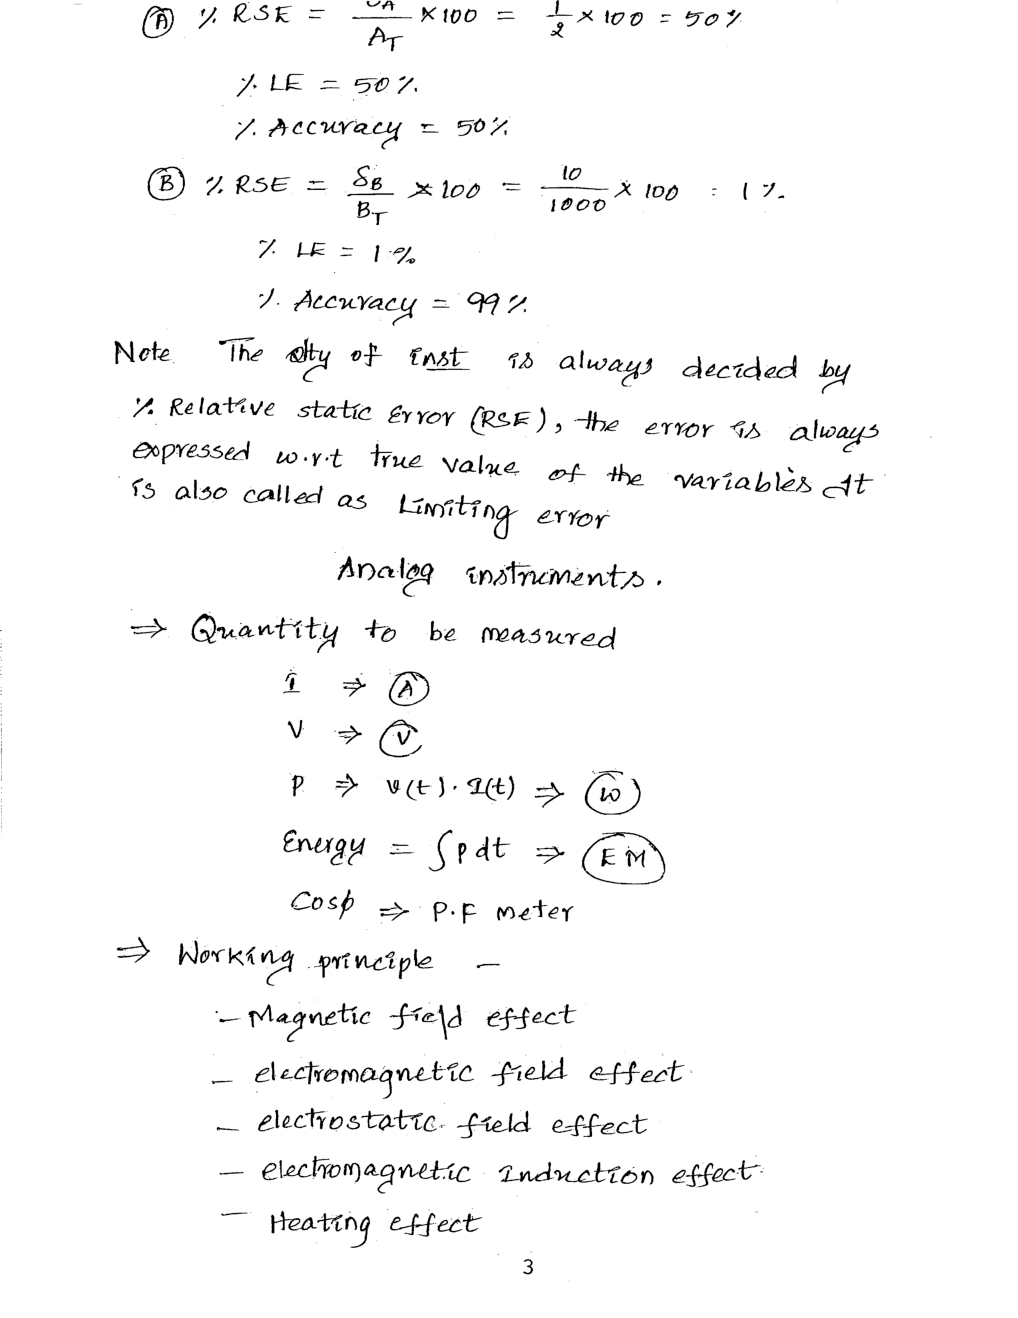 (A) % RSE = δA/A_T × 100 = 1/2 × 100 = 50%
% LE = 50%.
% Accuracy = 50%.
(B) % RSE = δB/B_T × 100 = 10/1000 × 100 : 1%.
% LE = 1%
% Accuracy = 99%.
Note The qlty of inst is always decided by
% Relative static Error (RSE), the error is always
expressed w.r.t true value of the variables It
is also called as Limiting error
Analog instruments.
⇒ Quantity to be measured
I ⇒ (A)
V ⇒ (V)
P ⇒ v(t). I(t) ⇒ (W)
Energy = ∫pdt ⇒ (EM)
Cosϕ ⇒ P.F meter
⇒ Working principle –
– Magnetic field effect
– electromagnetic field effect
– electrostatic field effect
– electromagnetic Induction effect
– Heating effect
3